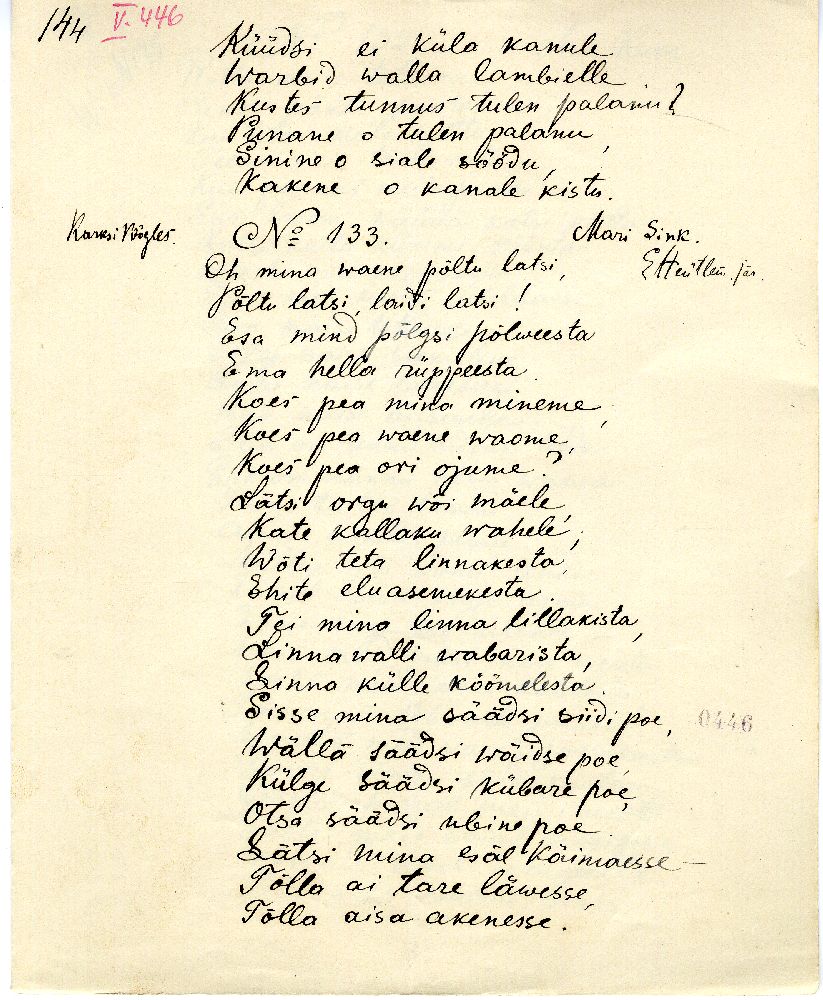 144 V. 446
Küüdsi ei küla kanule
Warbid walla lambielle
Kustes tunnus tulen palanu?
Punane o tulen palanu,
Sinine o siale söödu,
Kakene o kanale kistu.
Karksi Nõgles. № 133. Mari Sink.
Oh mina waene põltu latsi,
Põltu latsi, laidi latsi!
Esa mind põlgsi põlweesta
Ema hella rüppeesta.
Koes pea mina mineme,
Koes pea waene waome,
Koes pea ori ojume?
Lätsi orgu wõi mäele,
Kate kallaku wahele,
Wõti teta linnakesta,
Ehite eluasemekesta.
Tei mina linna lillakista,
Linna walli wabarista,
Linna külle köömelesta.
Sisse mina säädsi siidi poe,
0446
Wälla säädsi wäidse poe,
Külge säädsi kübare poe,
Otsa säädsi ubine poe.
Lätsi mina esäl käimaesse —
Tõlla ai tare läwesse,
Tõlla aisa akenesse.